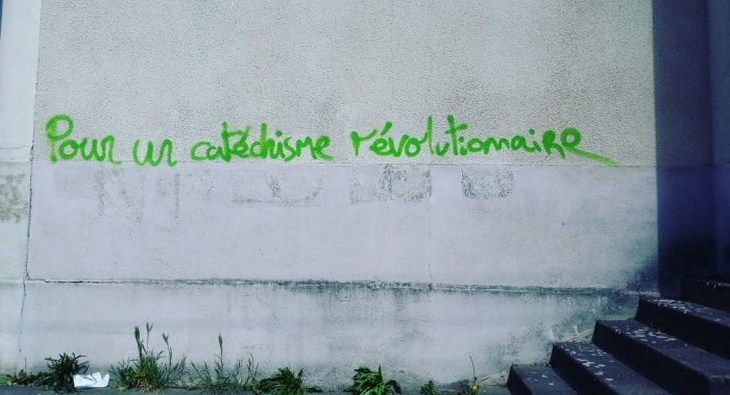 Pour un catéchisme révolutionnaire